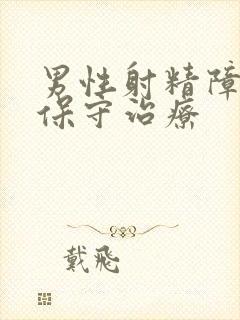 男性射精障
保守治療
戴飛